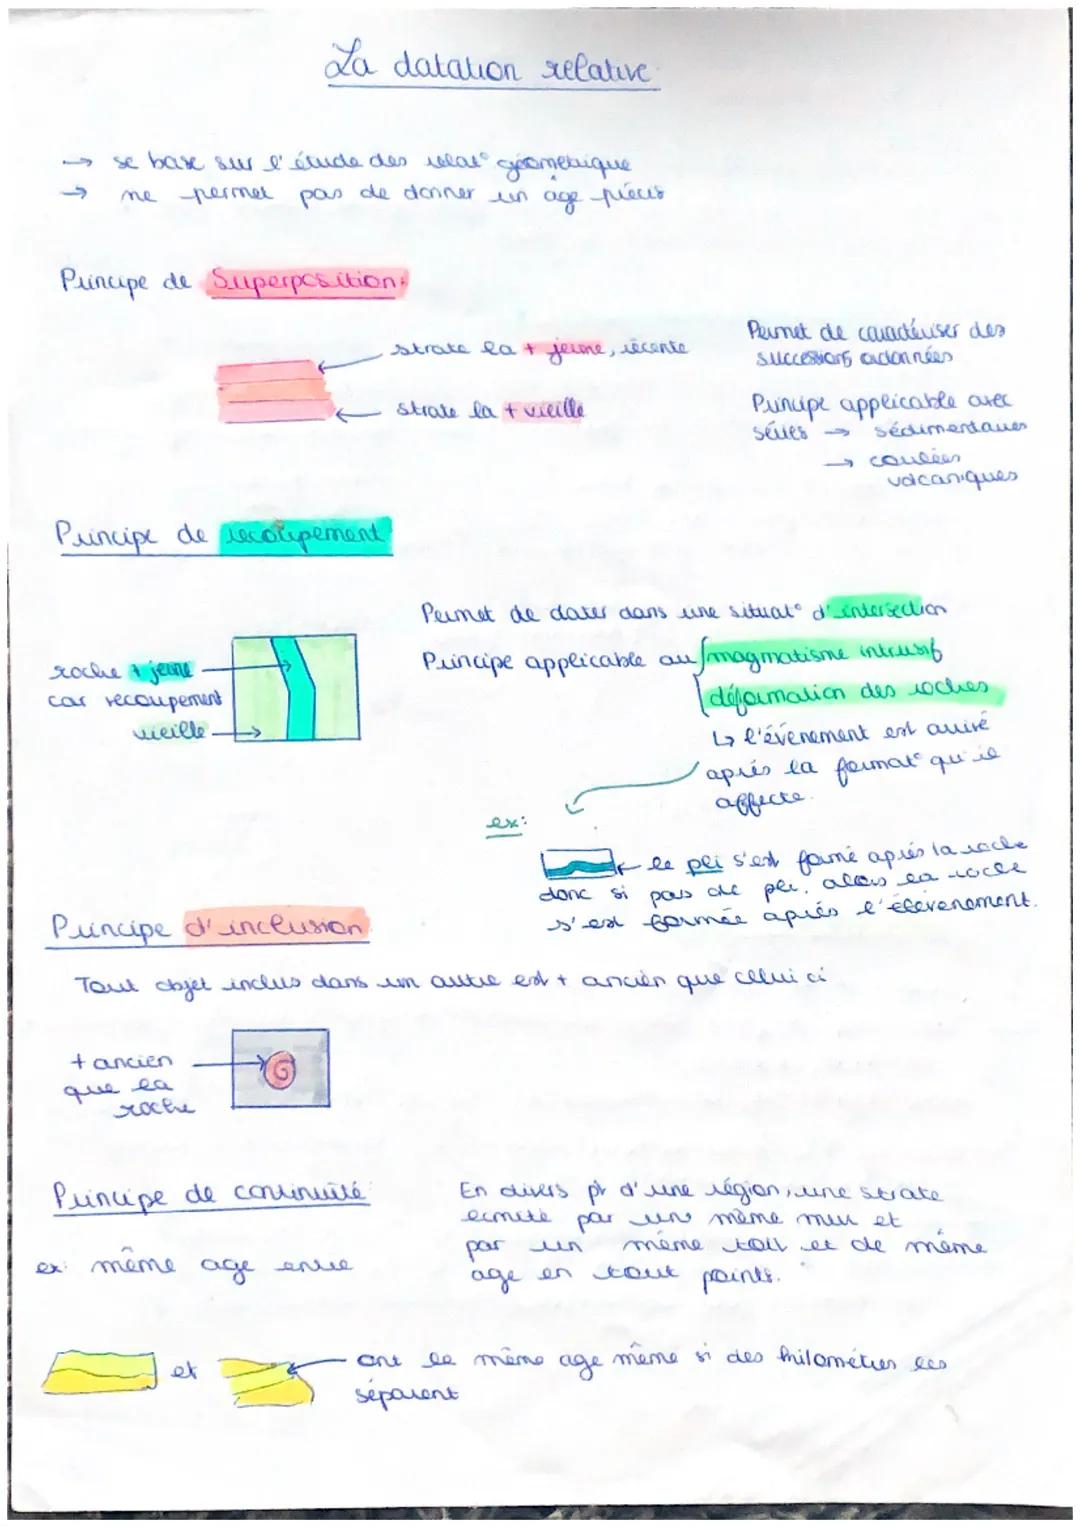 La datation relative
→ se base sur l'étude des relat° géométrique
→ ne permet pas de donner un âge précis
Principe de Superposition:
strate la + jeune, récente
strate la + vieille
Permet de caractériser des
successions ordonnées
Principe applicable avec
séries → sédimentaires
→ coulées
volcaniques
Principe de recoupement
roche + jeune
car recoupement
vieille
Permet de dater dans une situat° d'intersection
Principe applicable au magmatisme intrusif
déformation des roches
↳ l'évènement est arrivé
après la format° qu'il
affecte.
ex:
le pli s'est formé après la roche
donc si pas de pli, alors la roche
s'est formée après l'évènement.
Principe d'inclusion
Tout objet inclus dans un autre est + ancien que celui ci
+ ancien
que la
roche
Principe de continuité
En divers pt d'une région, une strate
par un même mur et
par un même toit et de même
age en tout points.
ex: même age entre
et
ont le même age même si des kilomètres les
séparent